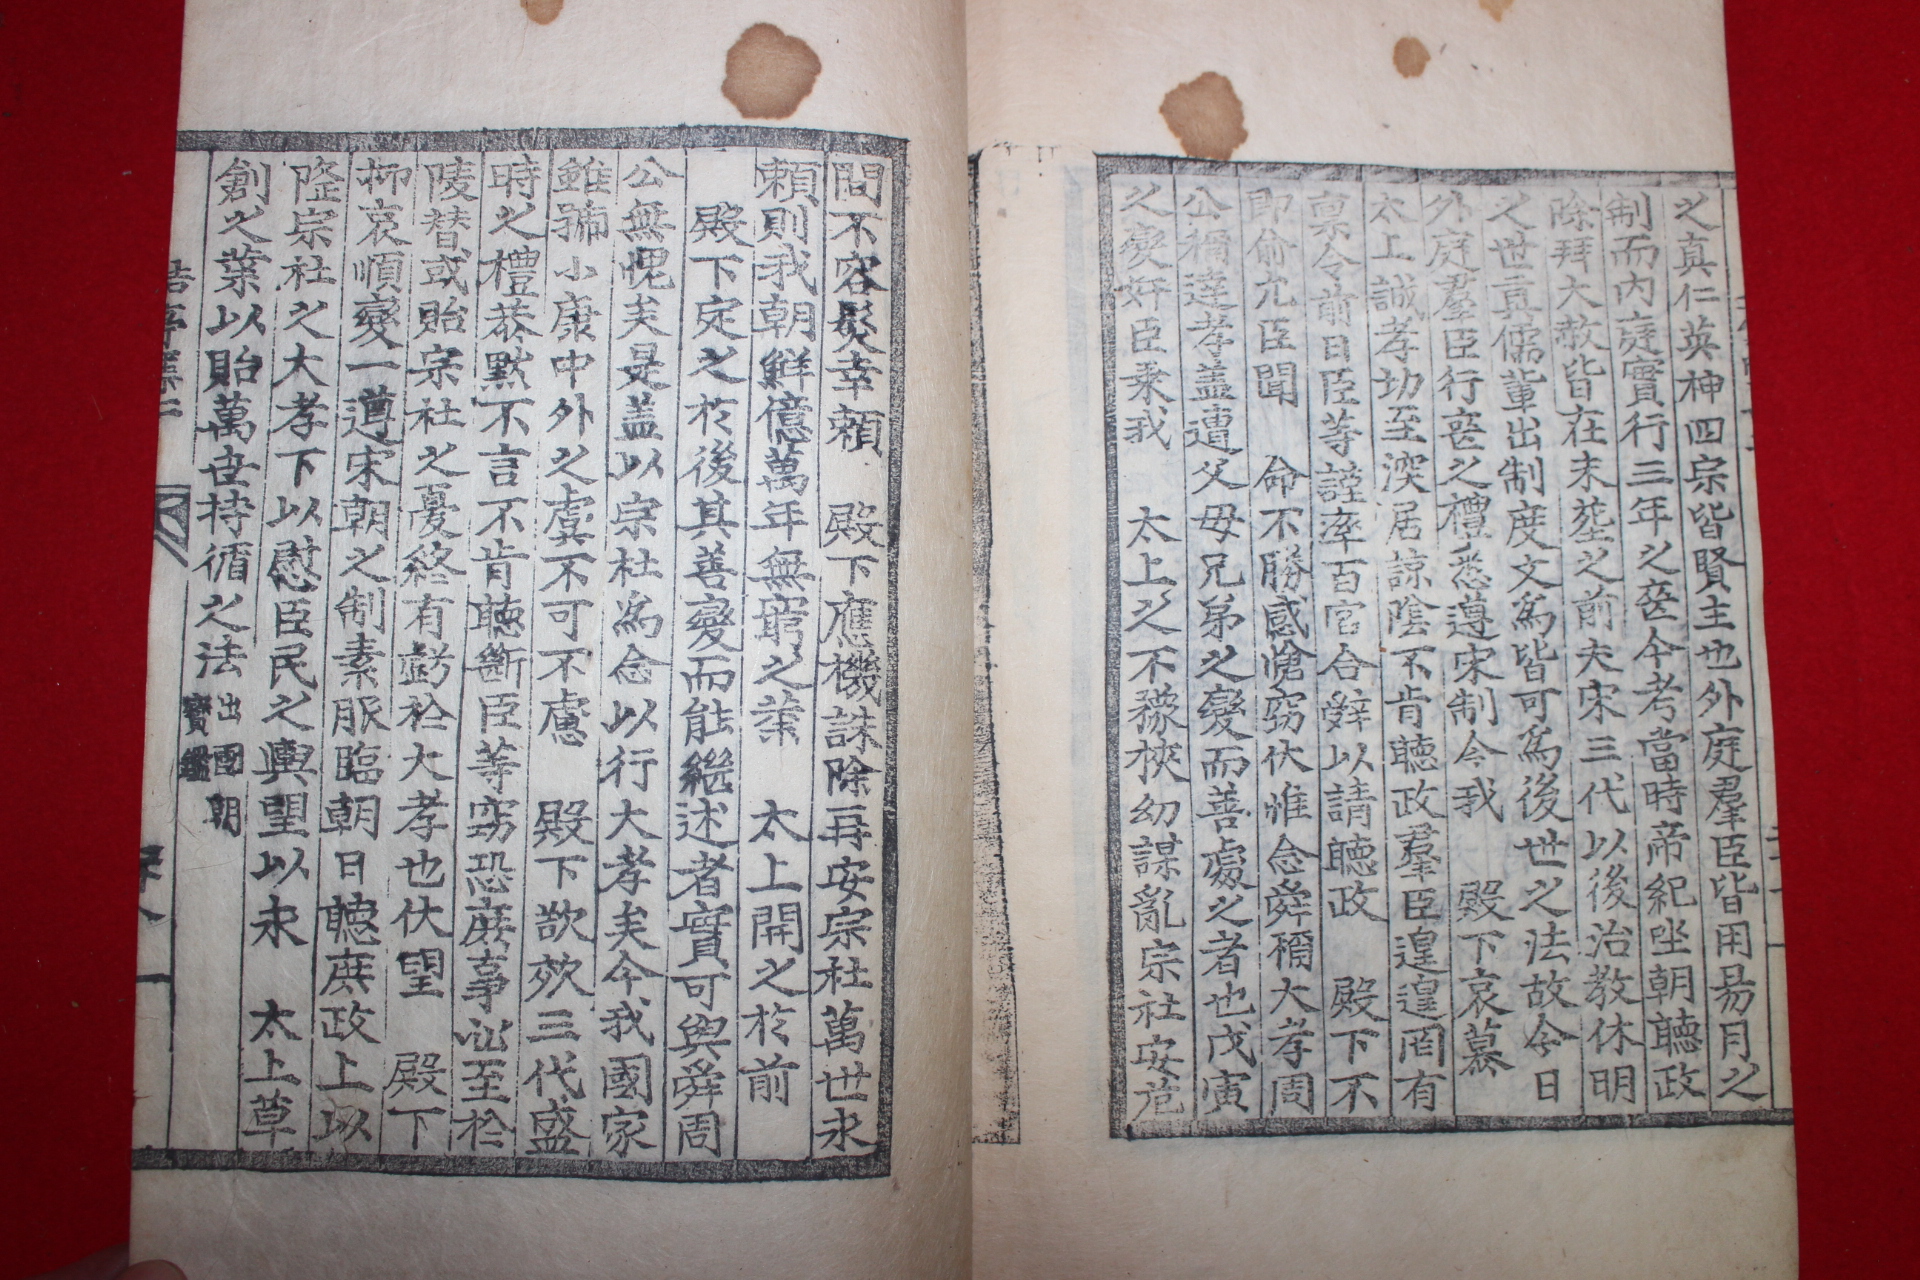 之真仁英神四宗皆賢主也外庭羣臣皆用易月之
制而內庭實行三年之喪今考當時帝紀坐朝聽政
除拜大赦皆在未葬之前夫宋三代以後治敎休明
之世眞儒輩出制度文爲皆可爲後世之法故今日
外庭羣臣行喪之禮悉遵宋制今我 殿下哀慕
太上誠孝切至深居諒陰不肯聽政羣臣遑遑罔有
稟令前日臣等謹率百官合辭以請聽政 殿下不
即俞允臣聞 命不勝感愴竊伏惟念舜稱大孝周
公稱達孝盖遭父母兄弟之變而善處之者也戊寅
之變奸臣乘我 太上之不豫挾幼謀亂宗社安危
間不容髮幸賴 殿下應機誅除再安宗社萬世永
賴則我朝鮮億萬年無窮之業 太上開之於前
殿下定之於後其善變而能繼述者實可與舜周
公無愧矣是盖以宗社爲念以行大孝矣今我國家
雖號小康中外之虞不可不慮 殿下欲效三代盛
時之禮恭默不言不肯聽斷臣等竊恐庶事訟至於
陵替或貽宗社之憂終有虧於大孝也伏望 殿下
抑哀順變一遵宋朝之制素服臨朝日聽庶政上以
隆宗社之大孝下以慰臣民之輿望以永 太上草
創之業以貽萬世持循之法 出國朝
寶鑑